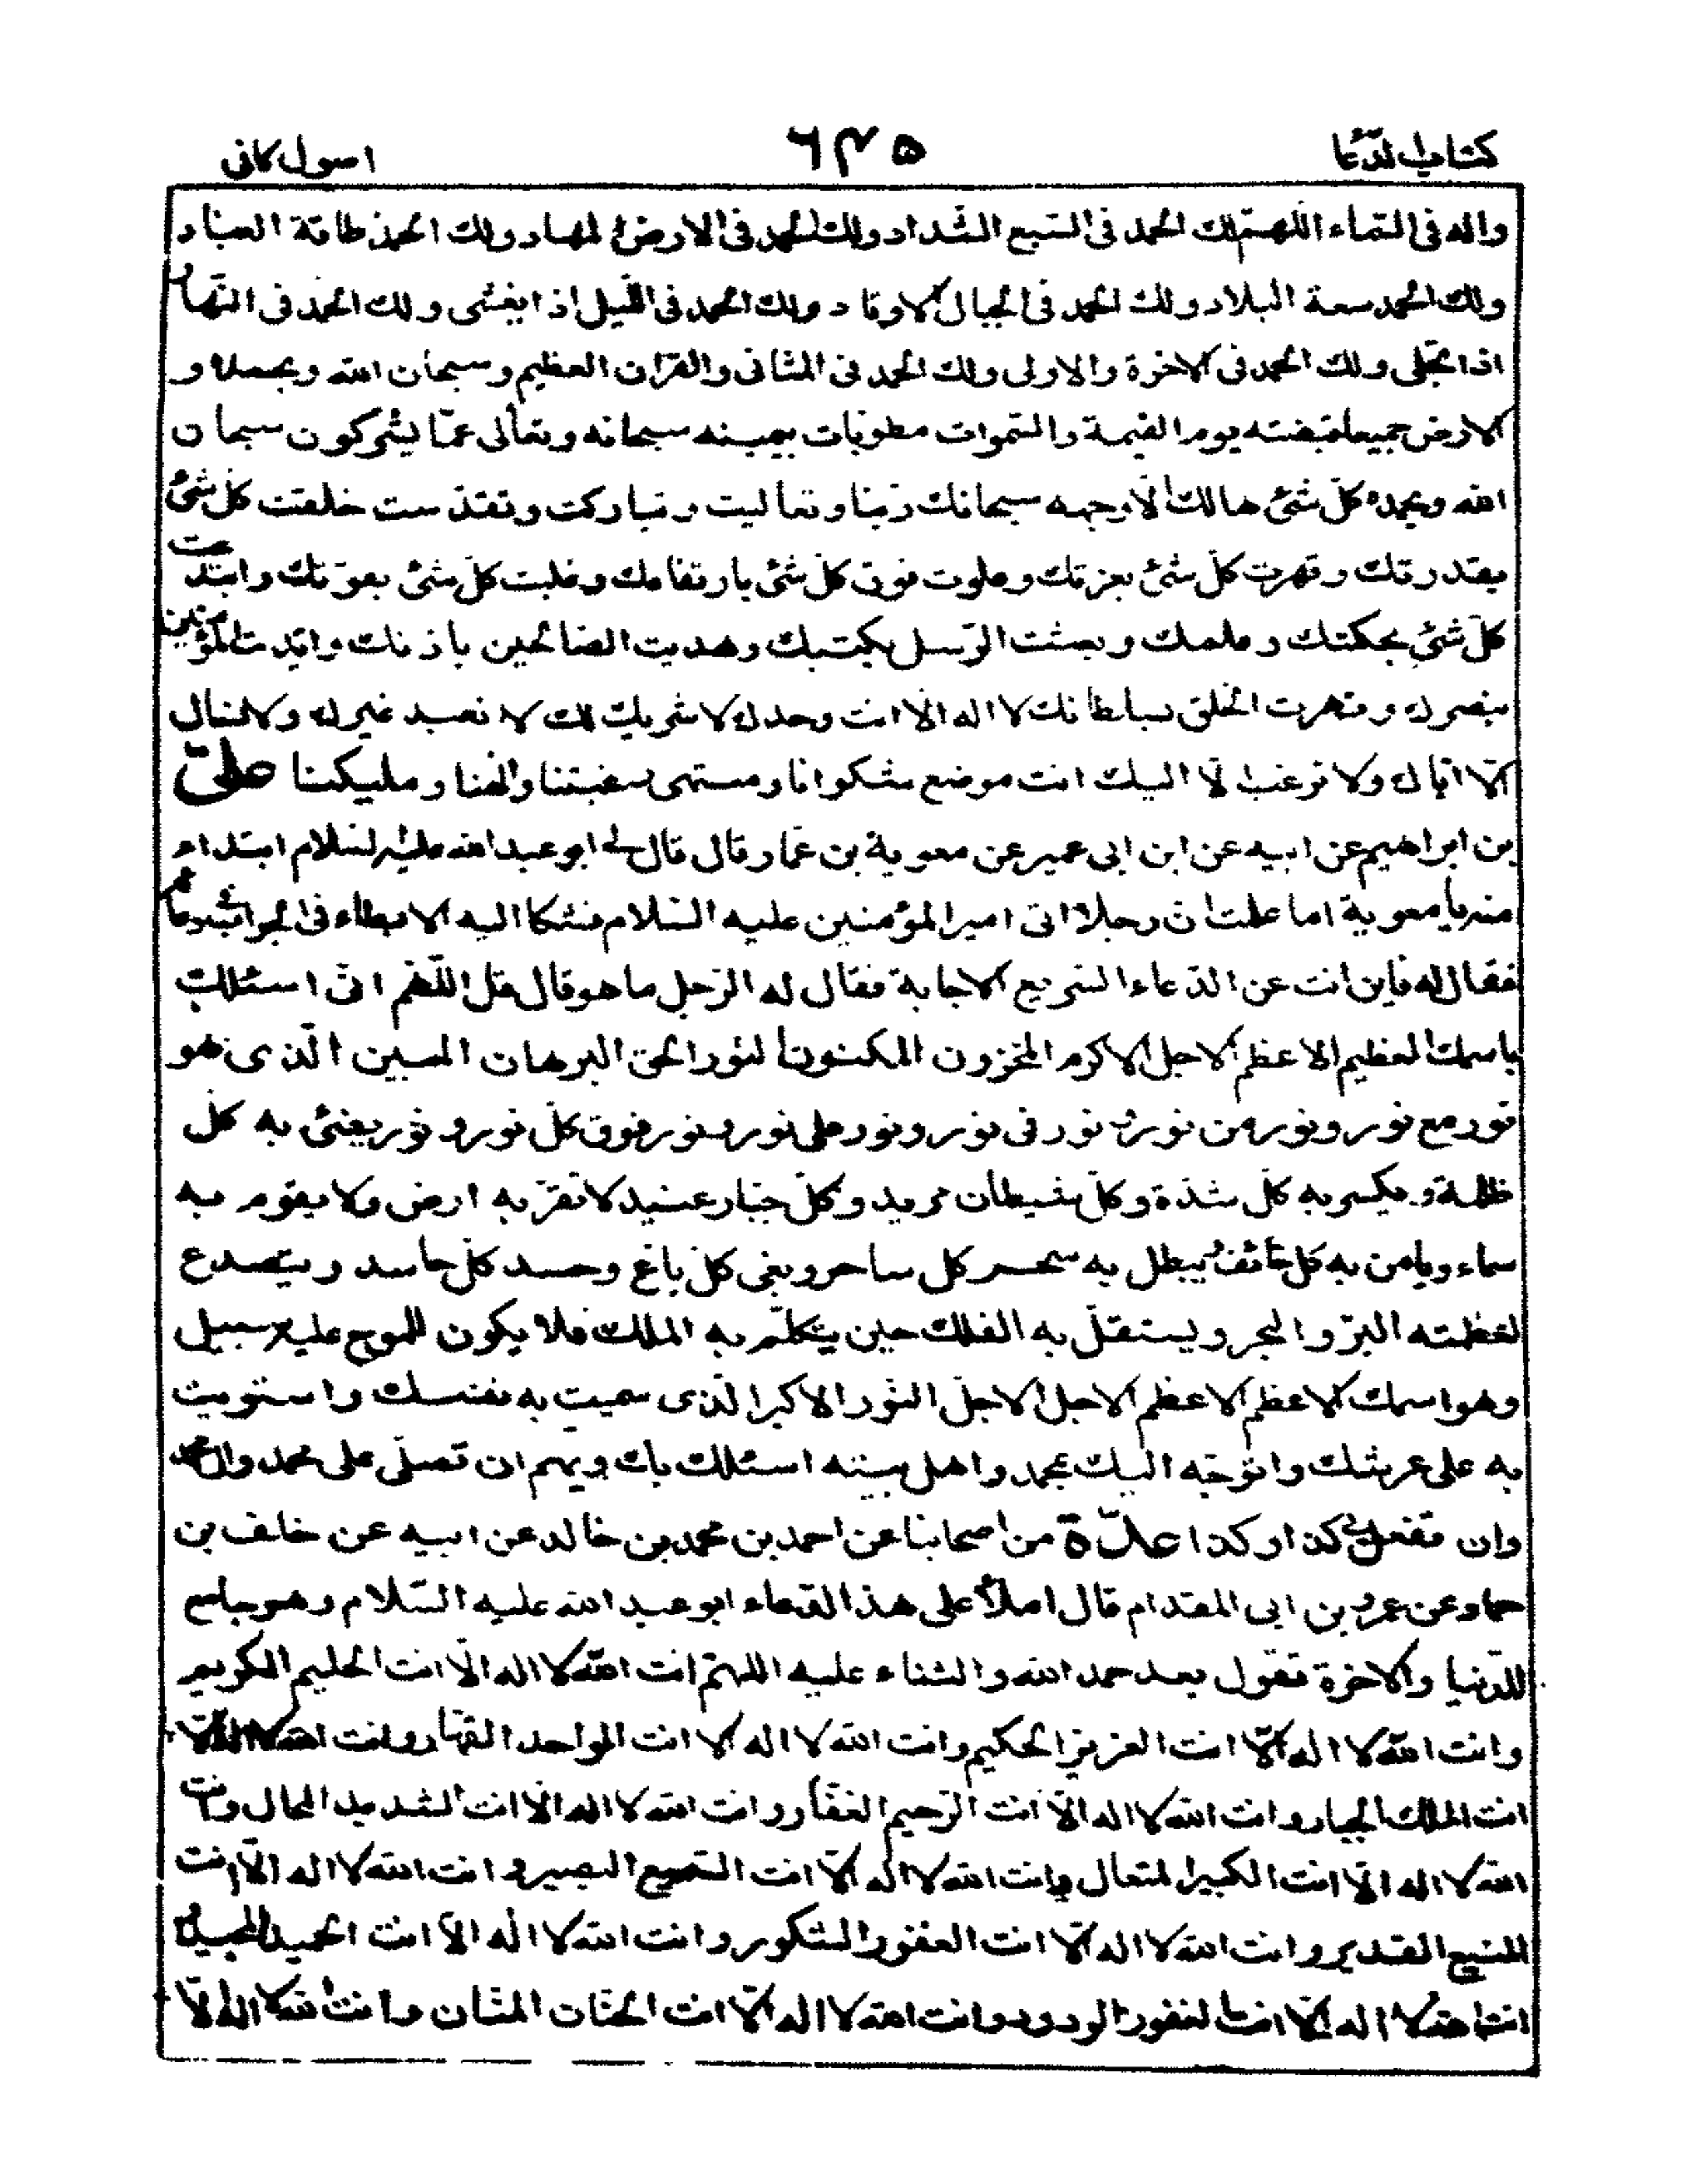 كتاب الدّعا ٦٣٥ اصول كافى
واله فى السّماء اللّهمّ لك الحمد فى السّبع الشّداد ولك الحمد فى الارض المهاد ولك الحمد طاقة العباد
ولك الحمد سعة البلاد ولك الحمد فى الجبال الاوتاد ولك الحمد فى اللّيل اذا يغشى ولك الحمد فى النّهار
اذا تجلّى ولك الحمد فى الاخرة والاولى ولك الحمد فى المثانى والقران العظيم وسبحان الله وبحمده و
الارض جميعا قبضته يوم القيمة والسّموات مطويّات بيمينه سبحانه وتعالى عمّا يشركون سبحان
الله وبحمده كلّ شئ هالك الّا وجهه سبحانك ربّنا وتعاليت وتباركت وتقدّست خلقت كلّ شئ
بقدرتك وقهرت كلّ شئ بعزتك وعلوت فوق كلّ شئ بارتفاعك وغلبت كلّ شئ بقوّتك وابتدعت
كلّ شئ بحكمتك وعلمك وبعثت الرّسل بكتبك وهديت الصّالحين باذنك وايّدت المؤمنين
بنصرك وقهرت الخلق بسلطانك لا اله الّا انت وحدك لا شريك لك لا نعبد غيرك ولا نسأل
الّا ايّاك ولا نرغب الّا اليك انت موضع شكوانا ومنتهى رغبتنا والهنا ومليكنا علىّ
بن ابراهيم عن ابيه عن ابن ابى عمير عن معوية بن عمّار قال قال لى ابو عبد الله عليه السّلام ابتداء
منه يا معوية اما علمت ان رجلا اتى امير المؤمنين عليه السّلام فشكا اليه الابطاء فى الجواب فى دعائه
فقال له فاين انت عن الدّعاء السّريع الاجابة فقال له الرّجل ما هو قال قل اللّهمّ انّى اسئلك
باسمك العظيم الاعظم الاجل الاكرم المخزون المكنون النور الحق البرهان المبين الّذى هو
نور مع نور ونور من نور ونور فى نور ونور على نور ونور فوق كلّ نور ونور يضئ به كلّ
ظلمة ويكسر به كلّ شدّة وكلّ شيطان مريد وكلّ جبّار عنيد لا تقرّ به ارض ولا يقوم به
سماء ويامن به كل خائف ويبطل به سحر كل ساحر وبغى كلّ باغ وحسد كلّ حاسد ويتصدع
لعظمته البرّ والبحر ويستقلّ به الفلك حين يتكلّم به الملك فلا يكون للموج عليه سبيل
وهو اسمك الاعظم الاعظم الاجل الاجلّ النّور الاكبر الّذى سميت به نفسك واستويت
به على عرشك واتوجّه اليك بمحمد واهل بيته اسئلك بك وبهم ان تصلّى على محمد وال محمد
وان تفعل بى كذا وكذا عدّة من اصحابنا عن احمد بن محمد بن خالد عن ابيه عن خلف بن
حماد عن عمرو بن ابى المقدام قال املأ على هذا الدّعاء ابو عبد الله عليه السّلام وهو جامع
للدّنيا والاخرة تقول بعد حمد الله والثناء عليه اللهمّ انت الله لا اله الّا انت الحليم الكريم
وانت الله لا اله الّا انت العزيز الحكيم وانت الله لا اله الا انت الواحد القهّار وانت الله لا اله الّا
انت الملك الجبار وانت الله لا اله الّا انت الرّحيم الغفّار وانت الله لا اله الّا انت الشديد المحال وانت
الله لا اله الّا انت الكبير المتعال وانت الله لا اله الّا انت السّميع البصير وانت الله لا اله الّا انت
المنيع القدير وانت الله لا اله الّا انت الغفور الشّكور وانت الله لا اله الّا انت الحميد المجيد و
انت الله لا اله الّا انت الغفور الودود وانت الله لا اله الّا انت الحنّان المنّان وانت الله لا اله الّا